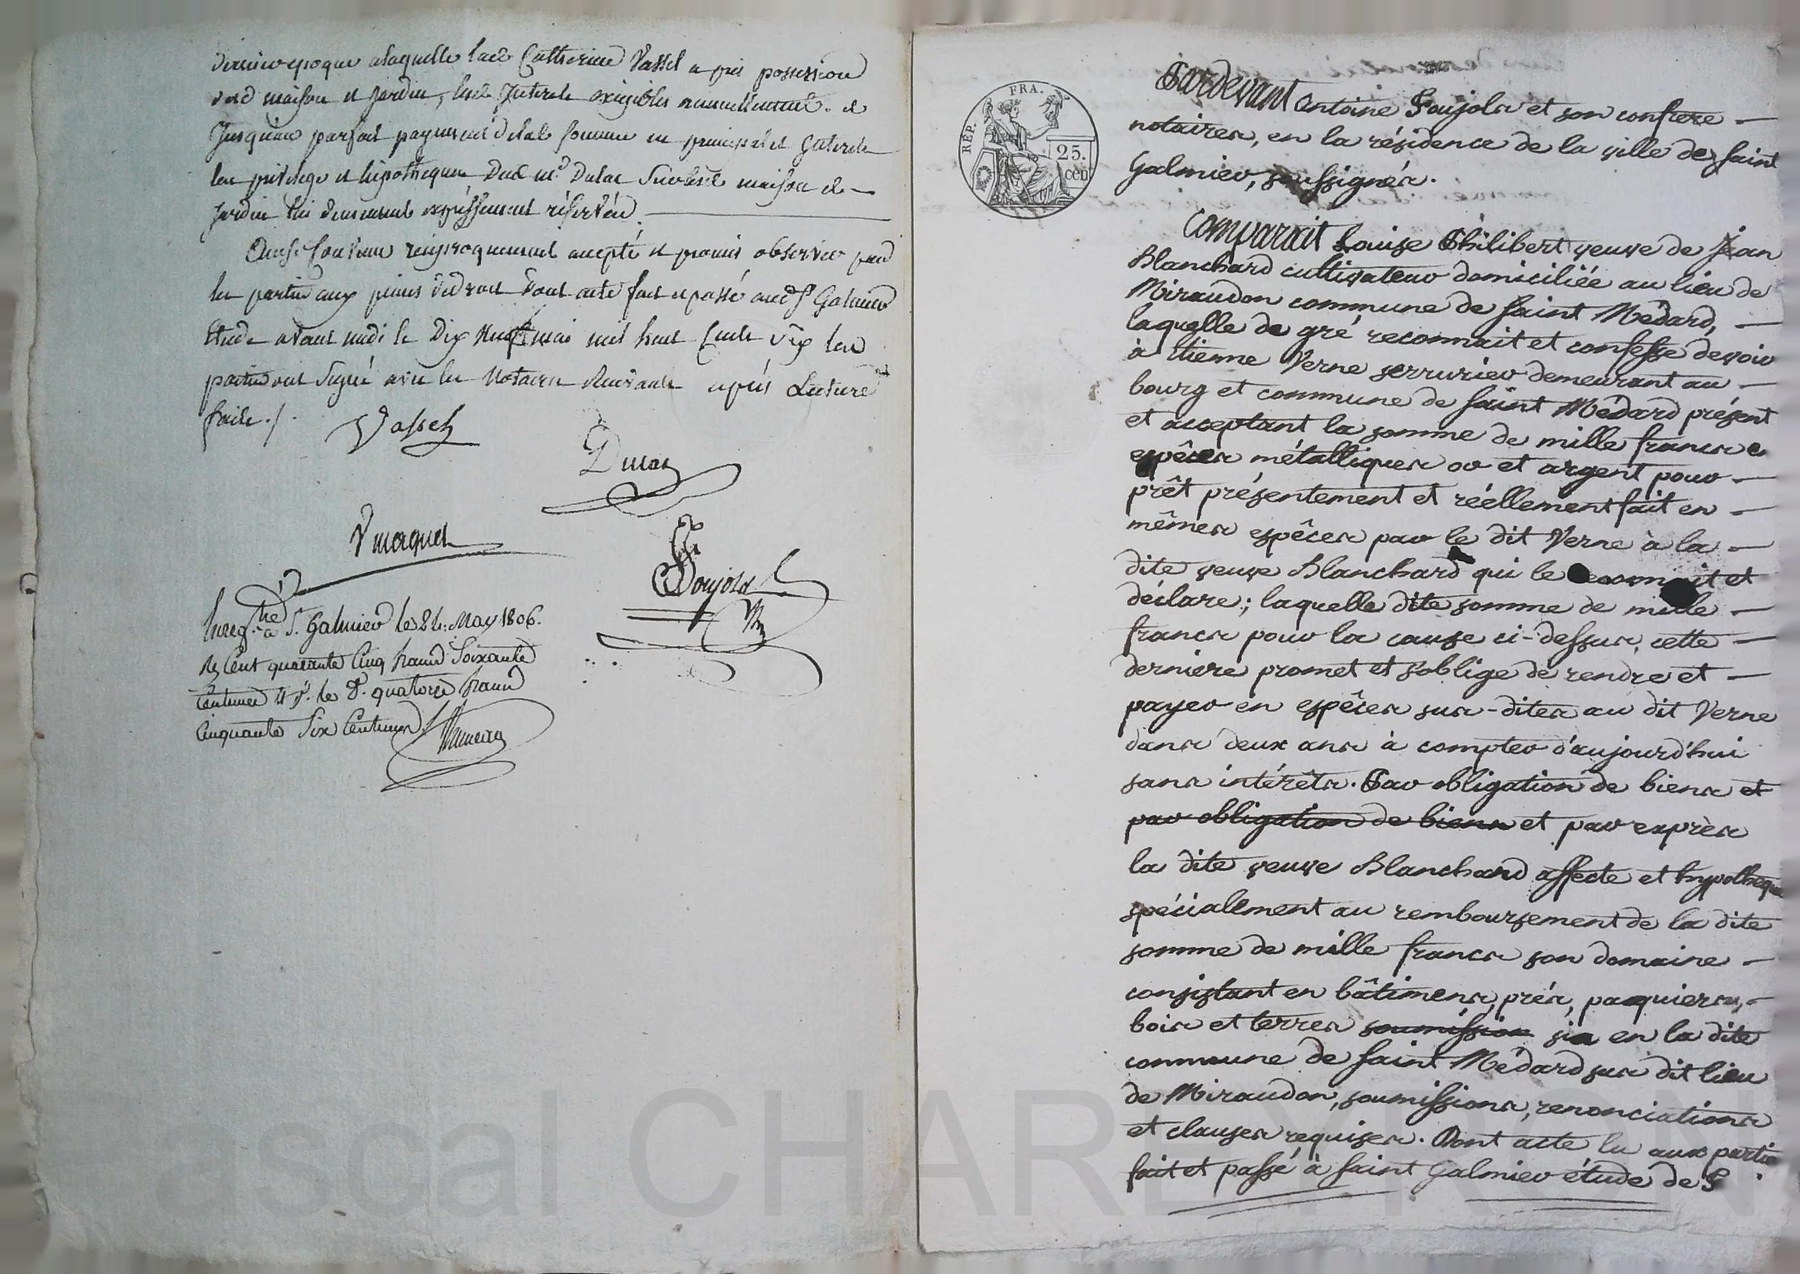 derniere epoque a laquelle lad.e Catherine Vassel a pris possession
desd maison et jardin, lesd Interets exigibles annuellement et
Jusqu'au parfait payement de lad somme en principal et Interets
les privilege et hipotheques Dud m.r Dulac Sur lesd maison et
Jardin lui demeurent expressement réservées.
Ainsi convenu réciproquement accepté et promis observer par
les parties aux peines de droit Dont acte fait et passé aud St Galmier
Etude avant midi le Dix neuf mai mil huit Cent Six les
parties ont Signé avec les Notaires Recevants après Lecture
faite ./.
Vassel
Dulac
Vmagnel
Poujola
Enreg.tré à St Galmier le 24 May 1806.
R Cent quarante Cinq francs Soixante
Centimes
quatorze francs
Cinquante Six Centimes
REP. FRA.
25. cen
Pardevant Antoine Poujola et son confrere
notaires, en la résidence de la ville de Saint
Galmier, soussignés.
Comparait Louise Philibert veuve de jean
Blanchard cultivateur domiciliée au lieu de
Miraudon commune de Saint Médard,
laquelle de gré reconnait et confesse devoir
à Etienne Verne serrurier demeurant au
bourg et commune de Saint Médard présent
et acceptant la somme de mille francs e
espêces métalliques or et argent pour
prêt présentement et réellement fait en
mêmes espêces par le dit Verne à la
dite veuve Blanchard qui le reconnait et
déclare; laquelle dite somme de mille
francs pour la cause ci-dessus, cette
derniere promet et s'oblige de rendre et
payer en espêces sus-dites au dit Verne
dans deux ans à compter d'aujourd'hui
sans intérêts. Par obligation de biens et
par obligation de biens et par exprès
la dite veuve Blanchard affecte et hypothèque
spécialement au remboursement de la dite
somme de mille francs son domaine
consistant en bâtimens, prés, paquiers,
bois et terres soumission sis en la dite
commune de Saint Médard sus dit lieu
de Miraudon, soumissions, renonciations
et clauses requises. Dont acte lu aux partie
fait et passé à Saint Galmier étude de P
ascal CHARDRON